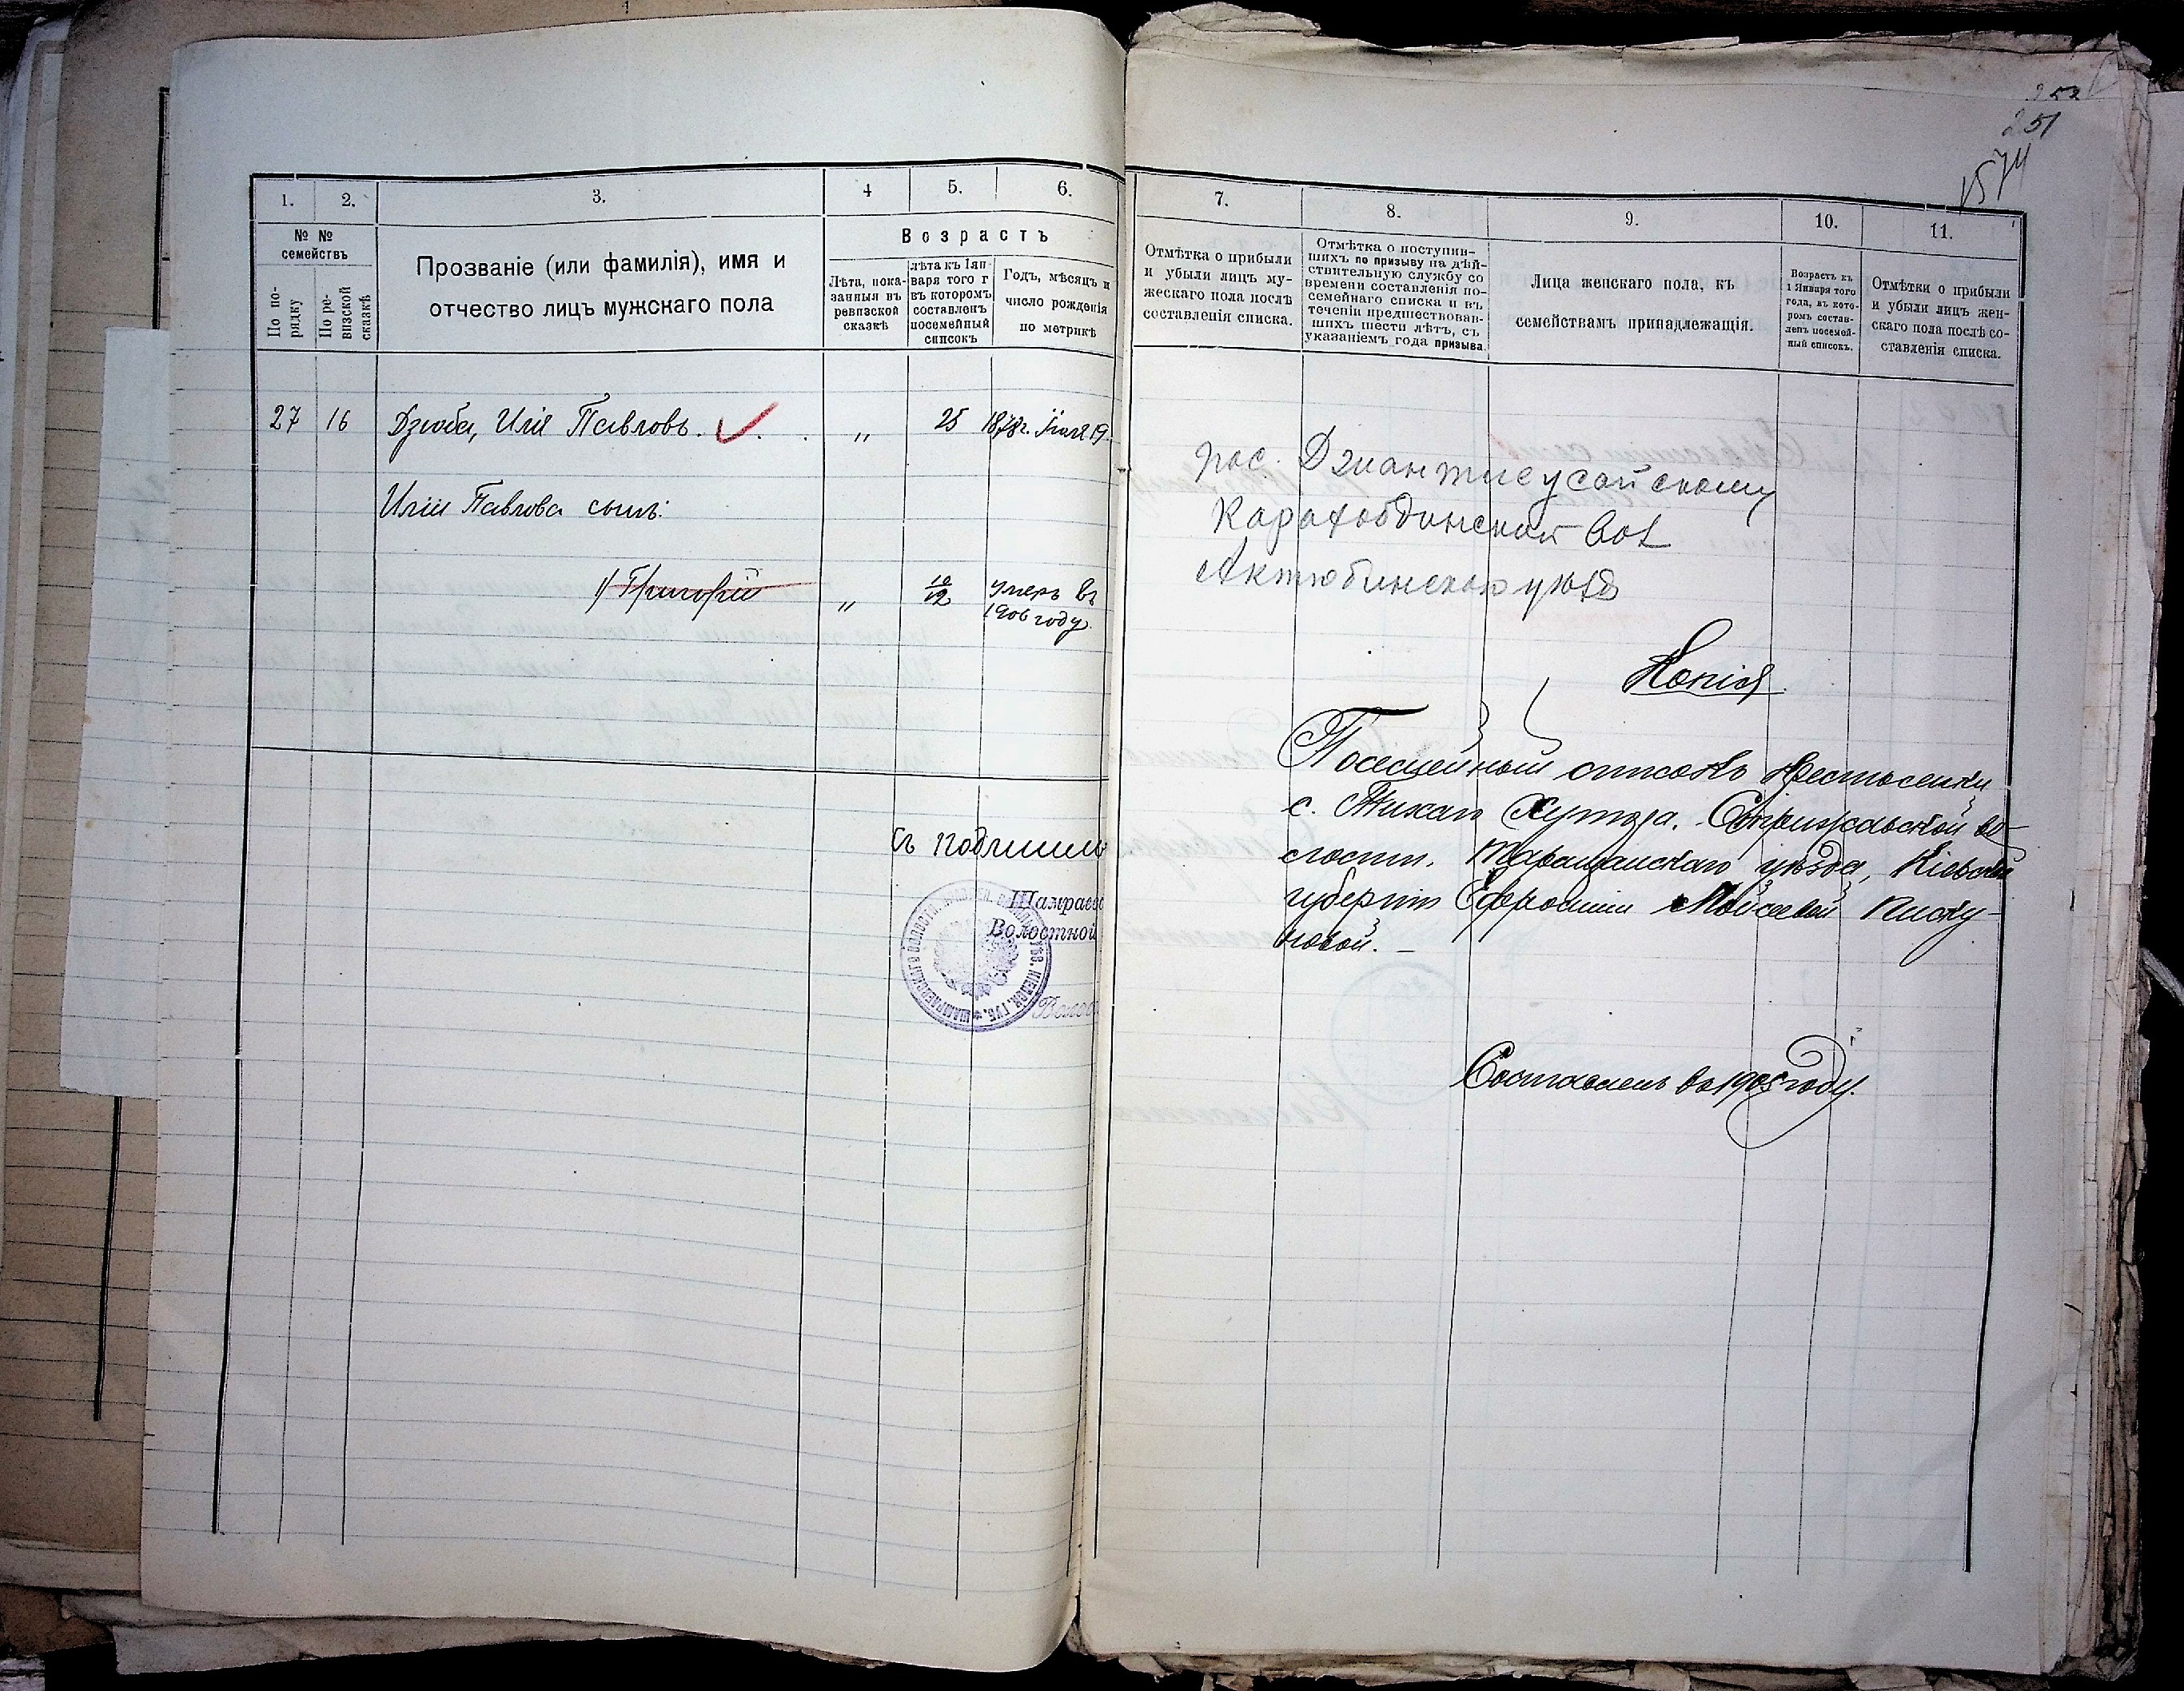 1. 2. 3. 4 5. 6.
№ №
семействъ
По по-
рядку
По ре-
визской
сказкѣ
Прозваніе (или фамилія), имя и
отчество лицъ мужскаго пола
Возрастъ
Лѣта, пока-
занныя въ
ревизской
сказкѣ
лѣта къ 1 ян-
варя того г
въ которомъ
составленъ
посемейный
списокъ
Годъ, мѣсяцъ и
число рожденія
по метрикѣ
27 16 Дзюба, Илія Павловъ. " 25 1878 г. Іюля 19.
Иліи Павлова сынъ:
1/ Григорій " 10/12 умеръ въ
1906 году.
Съ подлинны
Шамраевс
Волостной
7. 8. 9. 10. 11.
Отмѣтка о прибыли
и убыли лицъ му-
жескаго пола послѣ
составленія списка.
Отмѣтка о поступив-
шихъ по призыву на дѣй-
ствительную службу со
времени составленія по-
семейнаго списка и въ
теченіи предшествовав-
шихъ шести лѣтъ, съ
указаніемъ года призыва.
Лица женскаго пола, къ
семействамъ принадлежащія.
Возрастъ къ
1 Января того
года, въ кото-
ромъ состав-
ленъ посемей-
ный списокъ.
Отмѣтки о прибыли
и убыли лицъ жен-
скаго пола послѣ со-
ставленія списка.
251
пос. Джантиеусайскому
Карахобдинской вол
Актюбинскаго уѣзд
Копія
Посемейный списокъ крестьянки
с. Тихаго Хутора, Стрижавской во-
лости, Таращанскаго уѣзда, Кіевской
губерніи Ефросиніи Моисеевой Писку-
новой. —
Составленъ въ 1905 году.